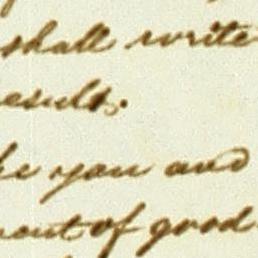 shall write
esults.
he you and
out of good